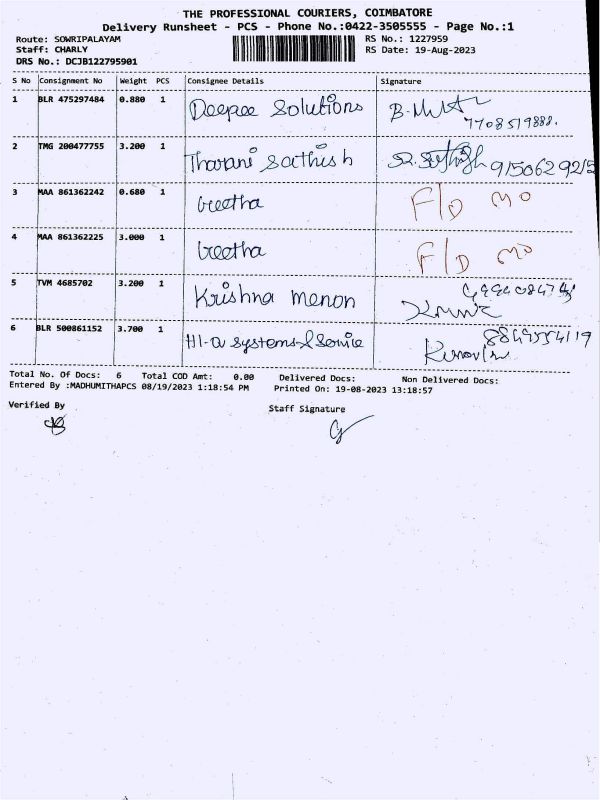 THE PROFESSIONAL COURIERS, COIMBATORE
Delivery Runsheet - PCS - Phone No.:0422-3505555 - Page No.:1
Route: SOWRIPALAYAM RS No.: 1227959
Staff: CHARLY RS Date: 19-Aug-2023
DRS No.: DCJB122795901
S No Consignment No Weight PCS Consignee Details Signature
1 BLR 475297484 0.880 1 Deepee Solutions
7708519888.
2 TMG 200477755 3.200 1 Tharani Sathish 9150629215
3 MAA 861362242 0.680 1 Geetha F/D MO
4 MAA 861362225 3.000 1 Geetha F/D MO
5 TVM 4685702 3.200 1 Krishna menon
6 BLR 500861152 3.700 1 HI-Q Systems & Service
Total No. Of Docs: 6 Total COD Amt: 0.00 Delivered Docs: Non Delivered Docs:
Entered By :MADHUMITHAPCS 08/19/2023 1:18:54 PM Printed On: 19-08-2023 13:18:57
Verified By Staff Signature